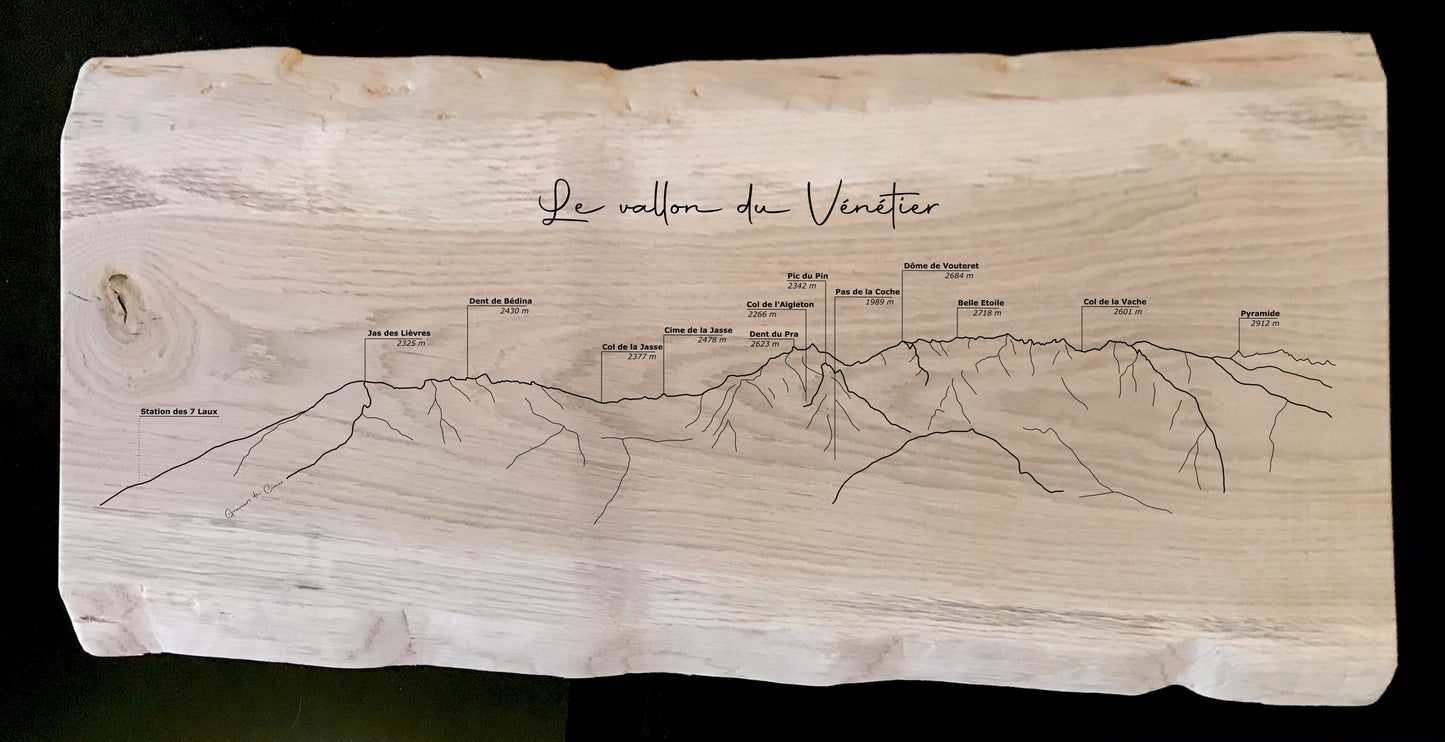 Le vallon du Vénétier
Dôme de Vouteret
2684 m
Pic du Pin
2342 m
Pas de la Coche
1989 m
Dent de Bédina
2430 m
Col de l'Aigleton
2266 m
Belle Etoile
2718 m
Col de la Vache
2601 m
Pyramide
2912 m
Jas des Lièvres
2325 m
Cime de la Jasse
2478 m
Dent du Pra
2623 m
Col de la Jasse
2377 m
Station des 7 Laux